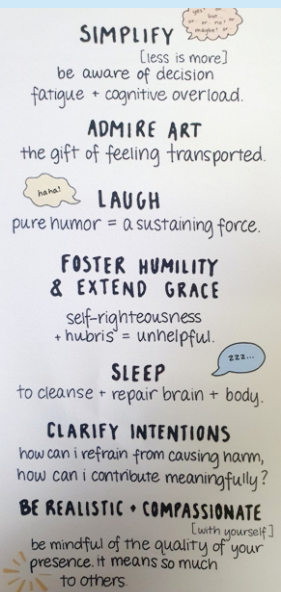 SIMPLIFY
[less is more]
be aware of decision
fatigue + cognitive overload.
ADMIRE ART
the gift of feeling transported.
haha!
LAUGH
pure humor = a sustaining force.
FOSTER HUMILITY
& EXTEND GRACE
self-righteousness
+ hubris = unhelpful.
zzz...
SLEEP
to cleanse + repair brain + body.
CLARIFY INTENTIONS
how can i refrain from causing harm,
how can i contribute meaningfully?
BE REALISTIC + COMPASSIONATE
[with yourself]
be mindful of the quality of your
presence. it means so much
to others.